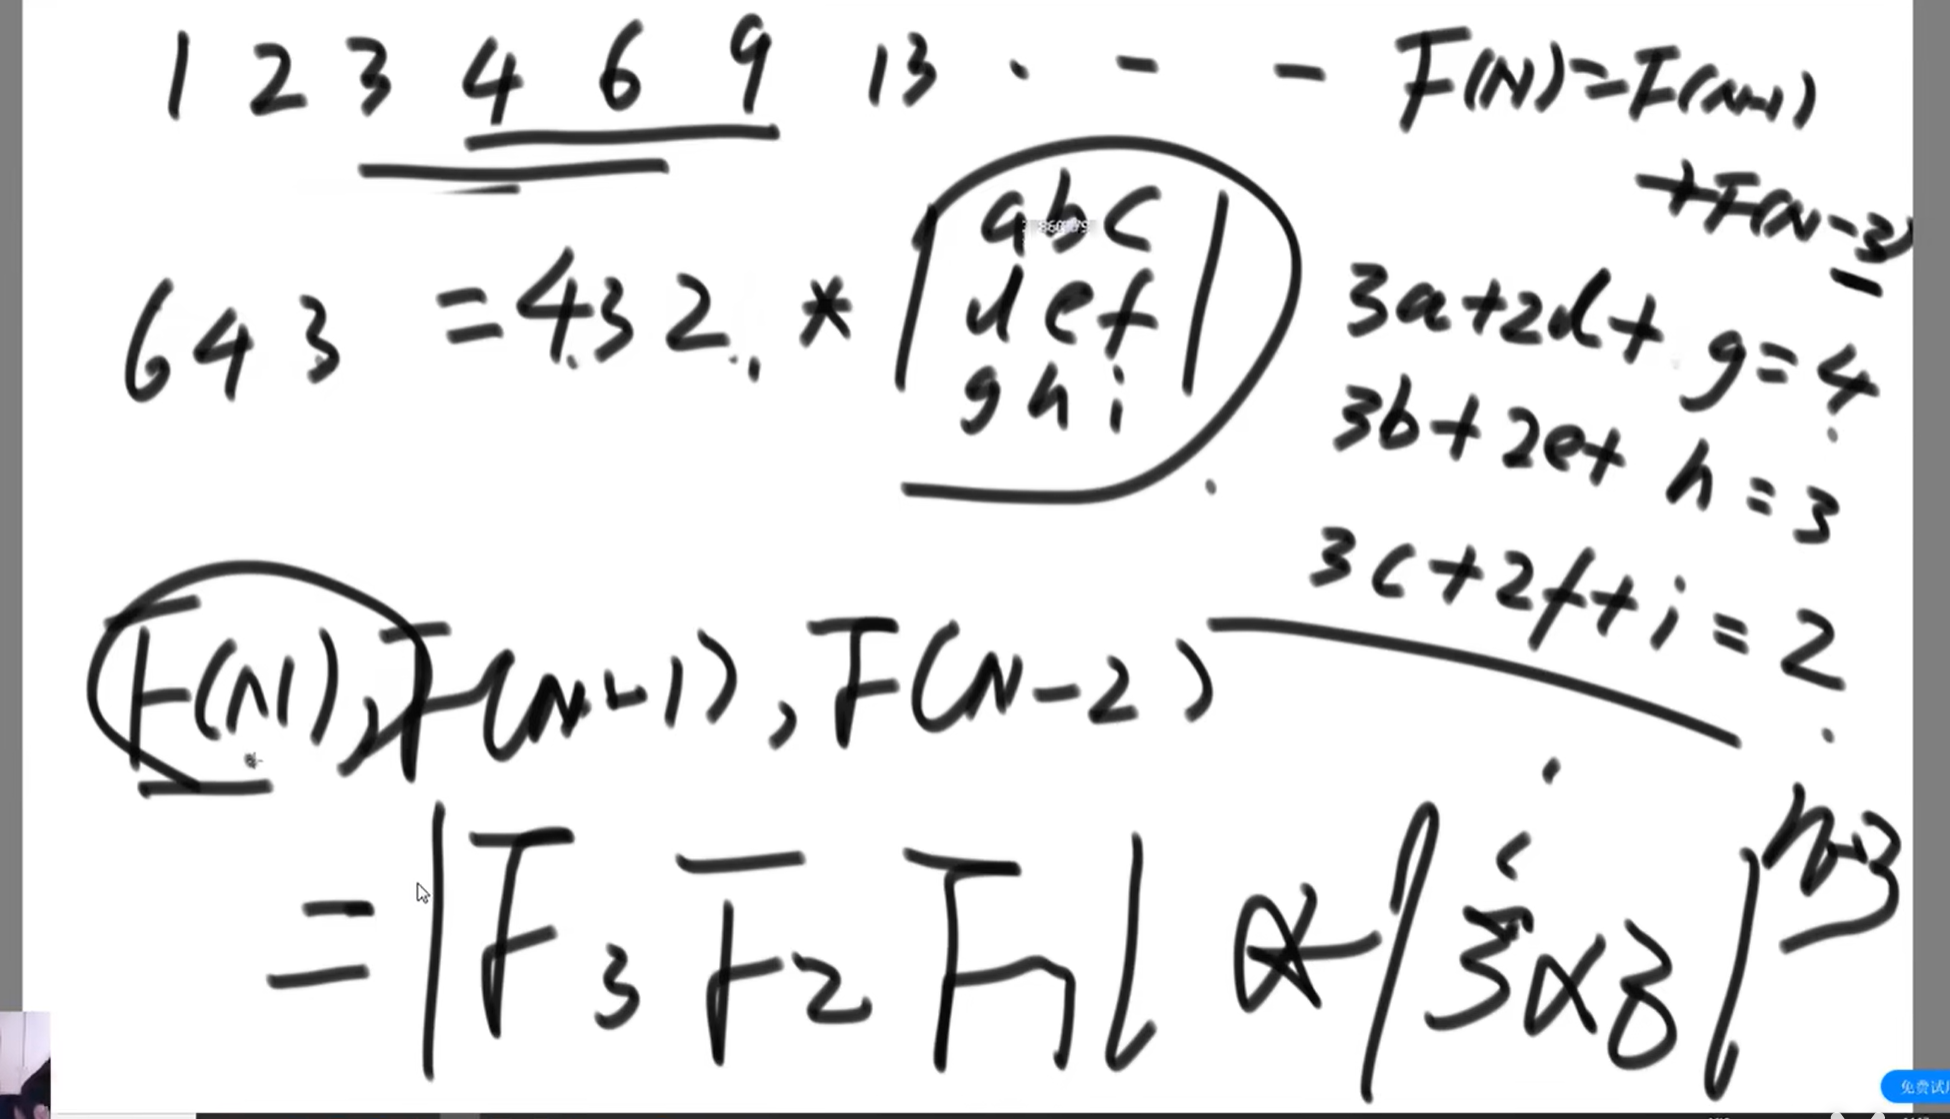 1 2 3 4 6 9 13 · - - F(N)=F(N-1)
+F(N-3)
643 =432 * |abc
def
ghi|
3a+2d+g=4
3b+2e+h=3
3c+2f+i=2
F(N),F(N-1),F(N-2)
=|F3 F2 F1| * |3x3|n-3
免费试用